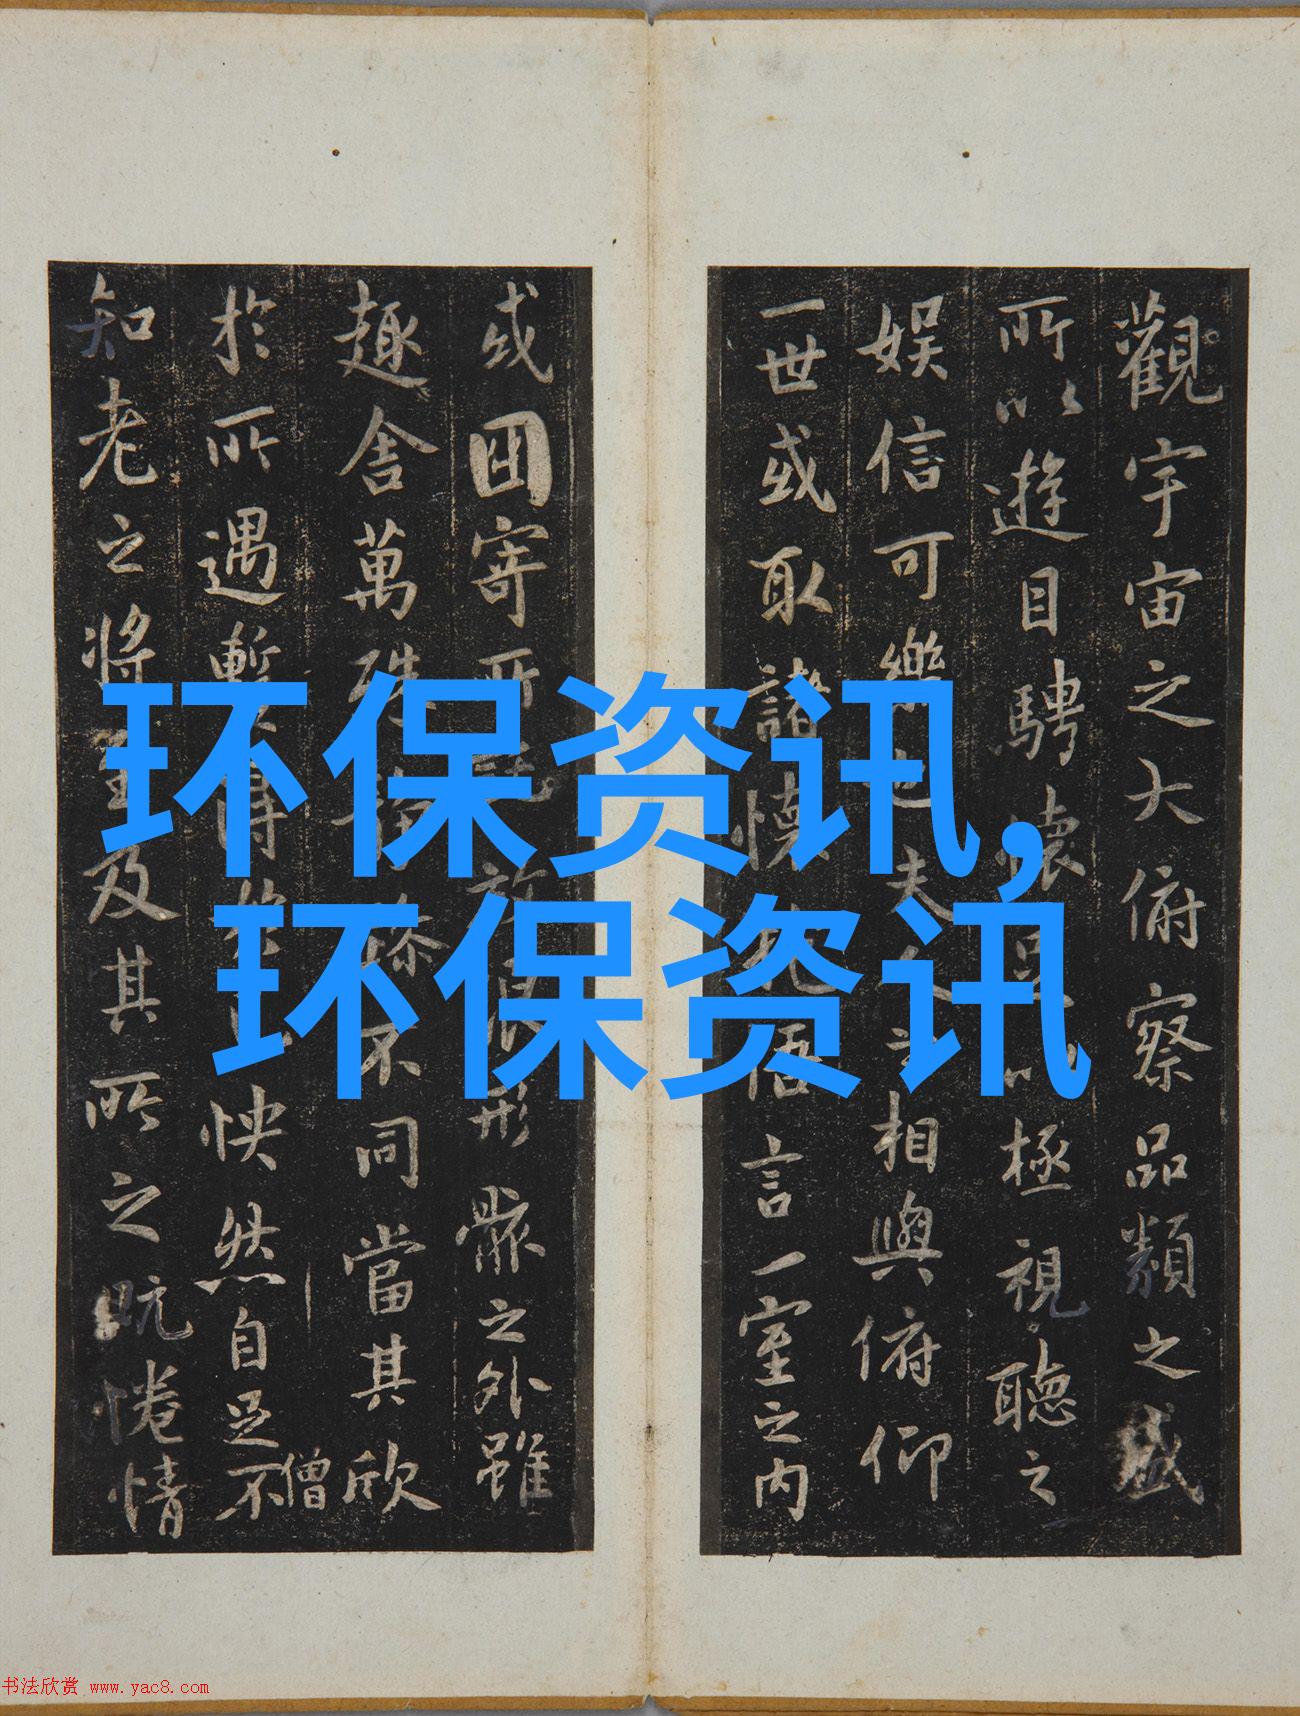 觀宇宙之大俯察品類之盛
所以遊目騁懷足以極視聽之
娛信可樂也夫人之相與俯仰
一世或取諸懷抱悟言一室之内
或因寄所託放浪形骸之外雖
趣舍萬殊靜躁不同當其欣
僧
於所遇暫得於己怏然自足不
知老之將至及其所之既惓情
环保资讯,
环保资讯
书法欣赏 www.yac8.com